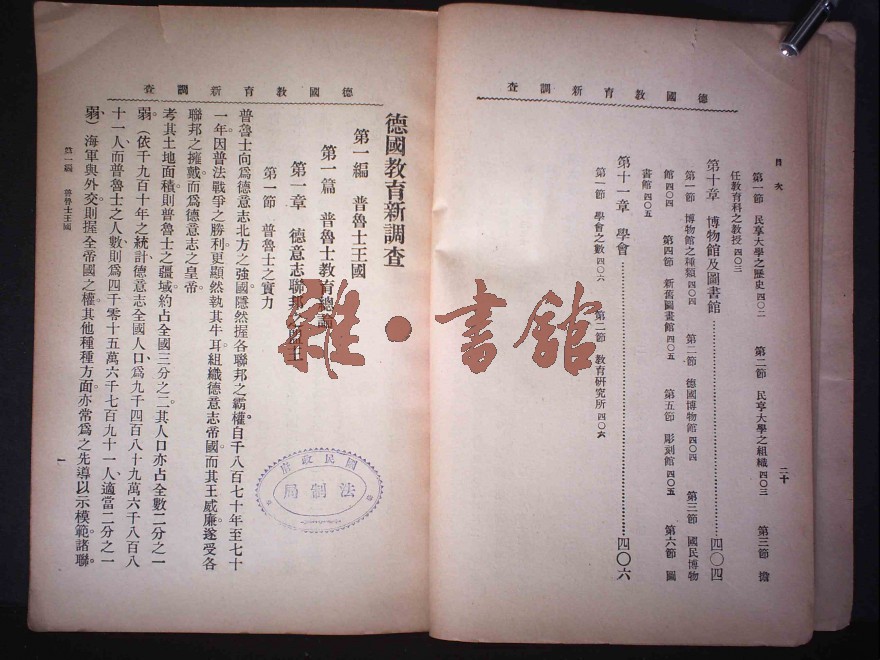 德國教育新調查
目次
二十
第一節 民亨大學之歷史四〇二 第二節 民亨大學之組織四〇三 第三節 擔
任教育科之教授四〇三
第十章 博物館及圖書館……四〇四
第一節 博物館之種類四〇四 第二節 德國博物館四〇四 第三節 國民博物
館四〇四 第四節 新舊圖畫館四〇五 第五節 彫刻館四〇五 第六節 圖
書館四〇五
第十一章 學會……四〇六
第一節 學會之數四〇六 第二節 教育研究所四〇六
德國教育新調查
德國教育新調查
第一編 普魯士王國
第一篇 普魯士教育總論
第一章 德意志聯邦之盟主
第一節 普魯士之實力
普魯士向爲德意志北方之強國。隱然握各聯邦之霸權。自千八百七十年至七十
一年。因普法戰爭之勝利。更顯然執其牛耳。組織德意志帝國。而其王威廉。遂受各
聯邦之擁戴。而爲德意志之皇帝。
考其土地面積。則普魯士之疆域。約占全國三分之二。其人口亦占全數二分之一
弱。(依千九百十年之統計、德意志全國人口、爲九千四百八十九萬六千八百八
十一人、而普魯士之人數、則爲四千零十五萬六千七百九十一人、適當二分之一
弱、)海軍與外交。則握全帝國之權。其他種種方面。亦常爲之先導。以示模範。諸聯
第一編 普魯士王國
一
國民政府
法制局
雜·書館